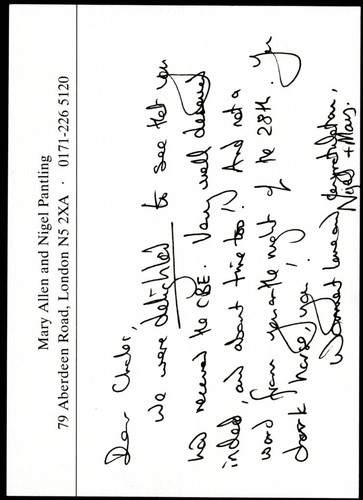 Mary Allen and Nigel Pantling
79 Aberdeen Road, London N5 2XA · 0171-226 5120
Dear Charles,
We were delighted to see that you
had received the CBE. Very well deserved
indeed, and about time too! And not a
word from you on the night of the 28th. You
dark horse, you.
Warmest love and congratulations,
Nigel + Mary.